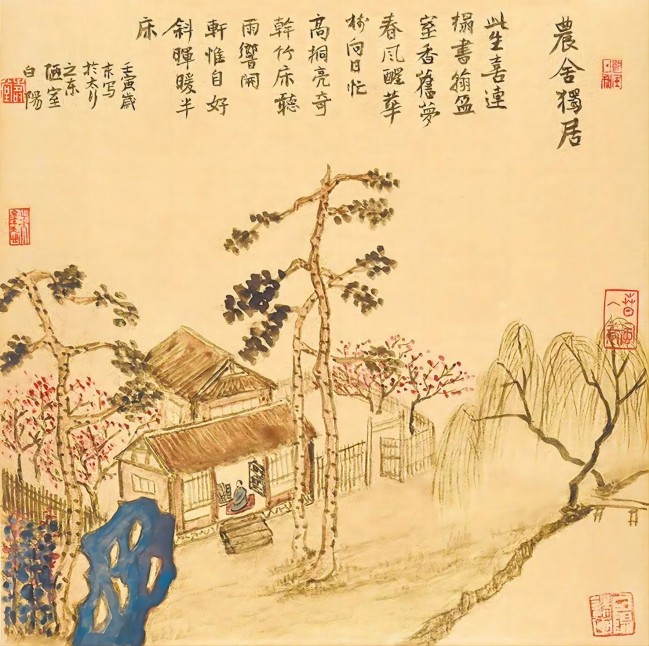 農舍獨居
此生喜連
榻書翰盈
室香舊夢
春风醒華
樹向日忙
高桐亮奇
幹竹床聽
雨響閑
軒惟自好
斜暉暖半
床
壬寅歲
末写
於太行
之东
陋室
白陽